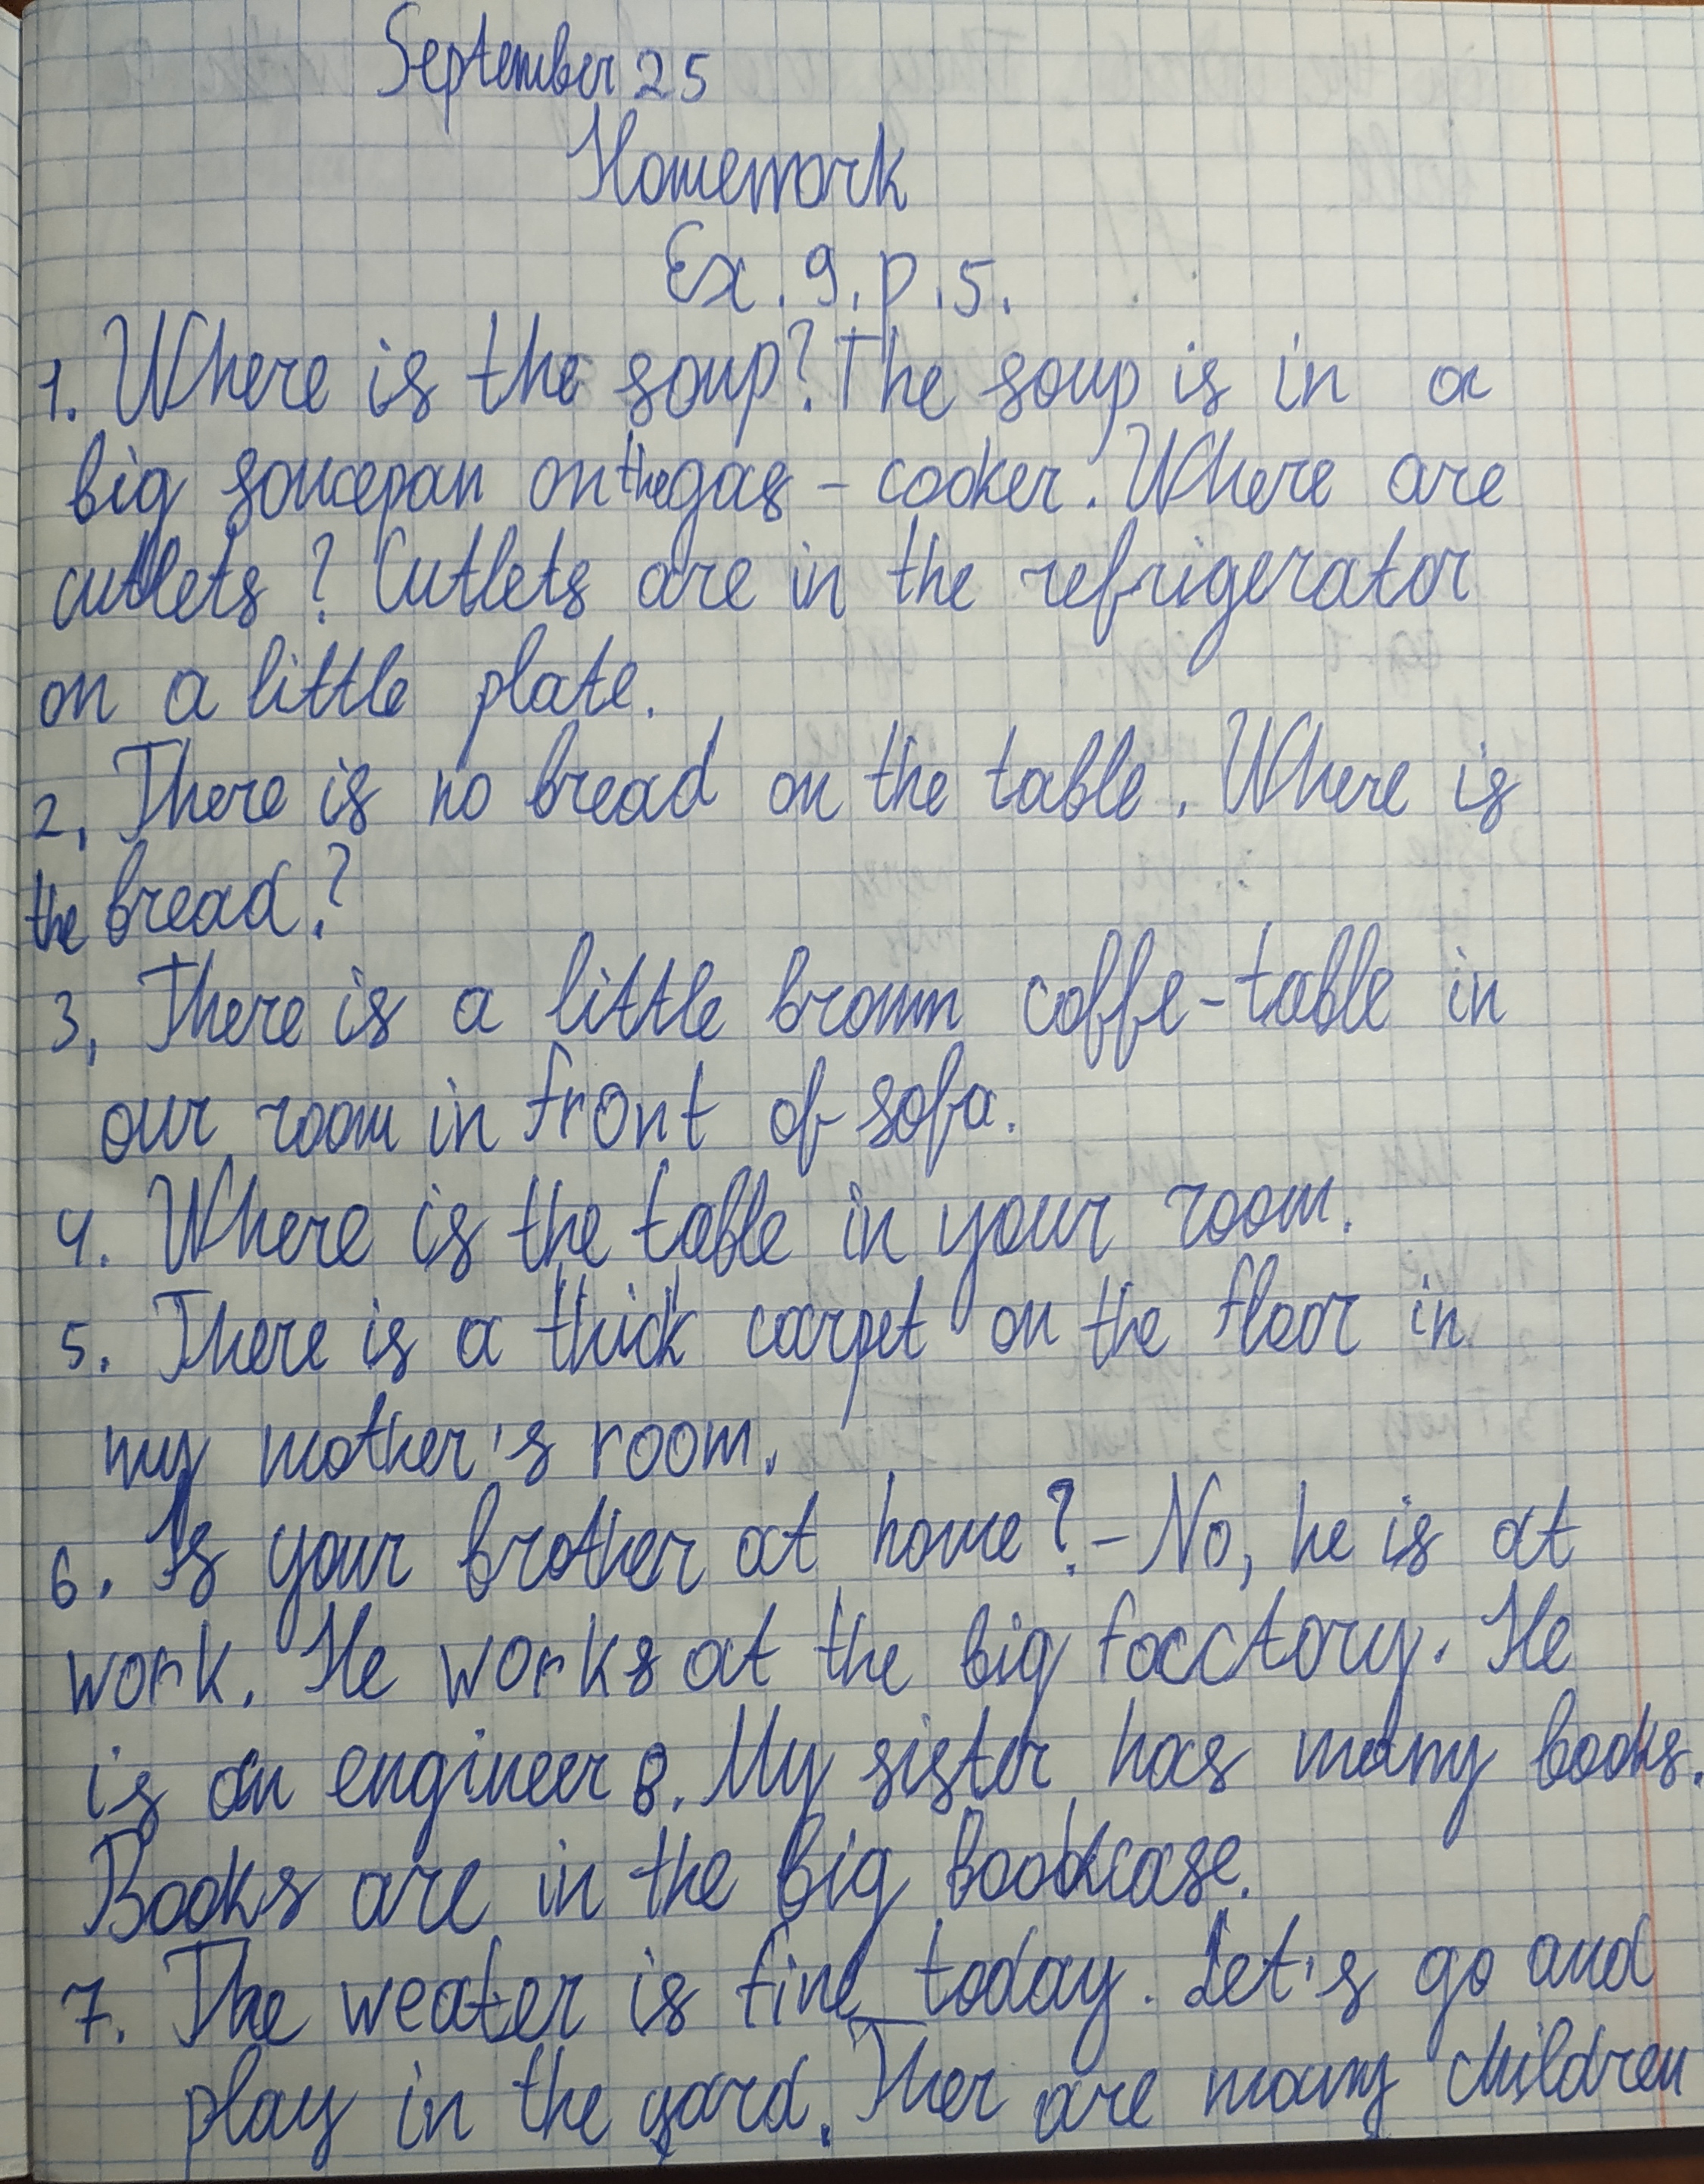 September 25
Homework
Ex. 9. p. 5.
1. Where is the soup? The soup is in a
big soucepan on the gas - cooker. Where are
cutlets? Cutlets are in the refrigerator
on a little plate.
2. There is no bread on the table. Where is
the bread?
3. There is a little brown coffe-table in
our room in front of sofa.
4. Where is the table in your room.
5. There is a thick carpet on the floor in
my mother's room.
6. Is your brother at home? - No, he is at
work. He works at the big facctory. He
is an engineer 8. My sister has many books.
Books are in the big bookcase.
7. The weater is fine today. Let's go and
play in the yard. Ther are many children